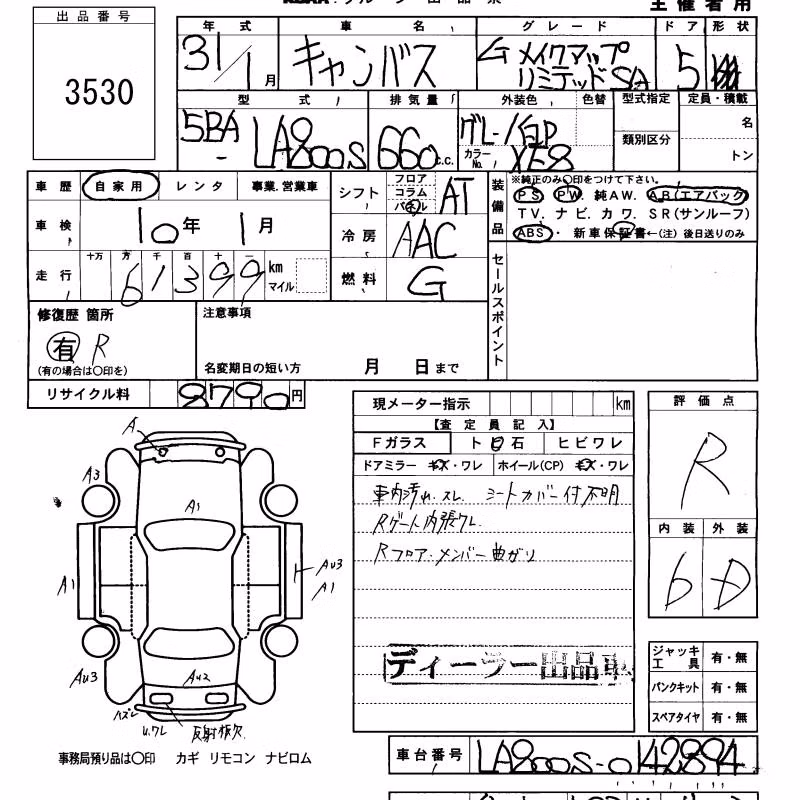 主催者用
出品番号
3530
年式 車名 グレード ドア 形状
31/1月 キャンバス G メイクアップ リミテッド SA 5
型式 排気量 外装色 色替 型式指定 定員・積載
5BA- LA800S 660 c.c. グレー/白P カラーNo. XE8 類別区分 名 トン
車歴 自家用 レンタ 事業.営業車
車検 10年 1月
走行 十万 万 千 百 十 一 61399 km マイル
シフト フロア コラム パネル AT
冷房 AAC
燃料 G
装備品 ※純正のみ○印をつけて下さい。
PS PW. 純AW. A.B(エアバック)
TV. ナビ. カワ. SR(サンルーフ)
ABS ・ 新車保証書←(注)後日送りのみ
セールスポイント
修復歴 箇所
有 R
(有の場合は○印を)
注意事項
名変期日の短い方 月 日まで
リサイクル料 8790円
現メーター指示 km
【査定員記入】
Fガラス ト石 ヒビワレ
ドアミラー キズ・ワレ ホイール(CP) キズ・ワレ
車内汚れ.スレ. シートカバー付不明
Rゲート内張ワレ
Rフロア・メンバー曲がり
ディーラー出品車
評価点
R
内装 外装
6 D
ジャッキ工具 有・無
パンクキット 有・無
スペアタイヤ 有・無
A
A3
A1
A1
AU3
A1
AU3
AU2
ハズレ
U.ワレ 反射板欠
事務局預り品は○印 カギ リモコン ナビロム
車台番号 LA800S-0142894